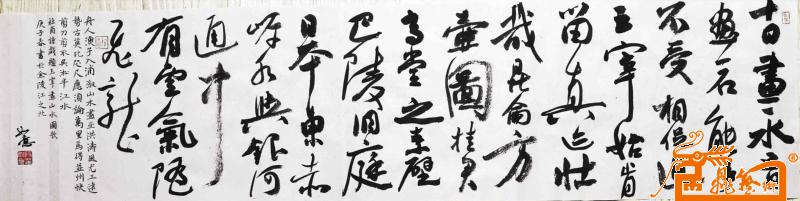 十日畫一水五
畫石能
不受相促
王宰始肯
留真迹壯
哉昆侖方
壺圖挂君
高堂之素壁
巴陵洞庭
日本東赤
岸水與銀河
通中
有雲氣隨
飛龍
舟人漁子入浦溆山木盡亞洪濤風尤工遠
勢古莫比咫尺應須論萬里焉得並州快
剪刀剪取吳淞半江水
杜甫詩戲題王宰畫山水圖歌
庚子春書於金陵江之北